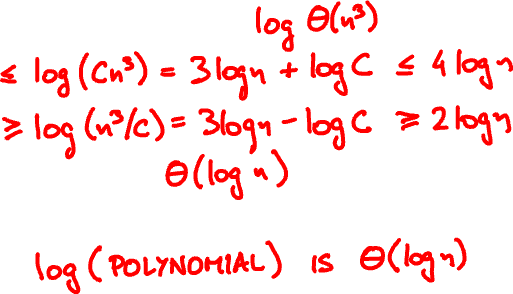 log Θ(n³)
≤ log(Cn³) = 3logn + logC ≤ 4logn
≥ log(n³/C) = 3logn - logC ≥ 2logn
Θ(log n)
log(POLYNOMIAL) IS Θ(logn)